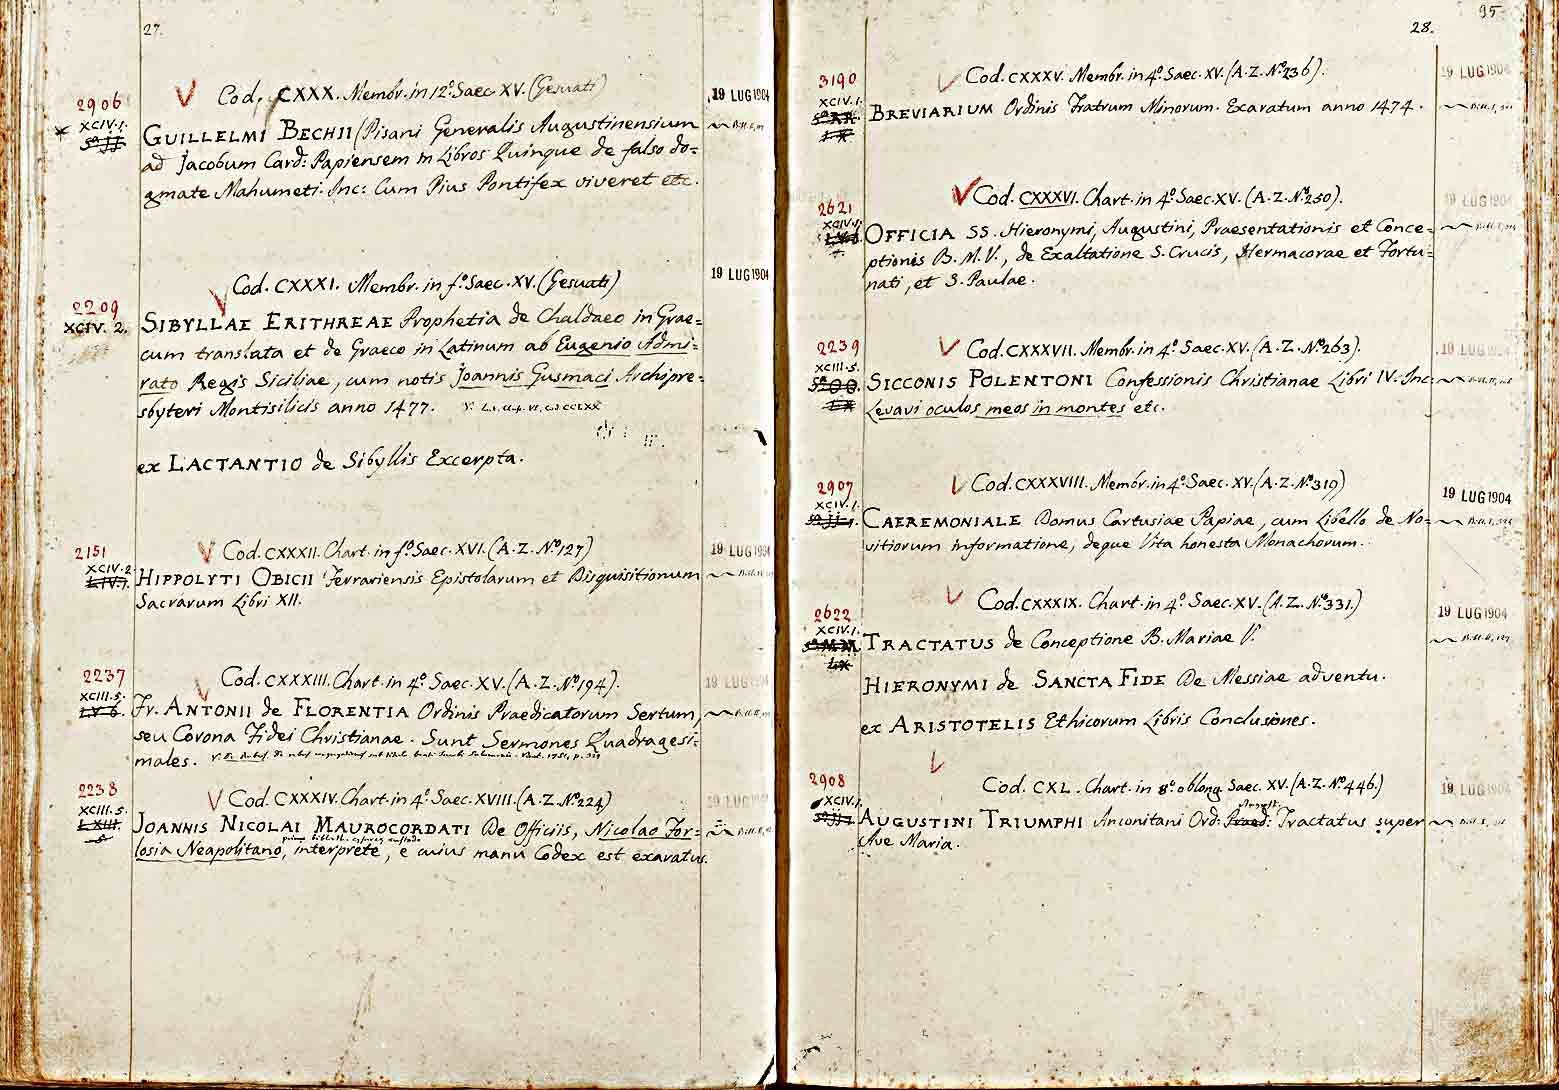 27.
2906
XCIV.1.
Cod. CXXX. Membr. in 12º. Saec. XV. (Gesuati)
19 LUG 1904
GUILLELMI BECHII (Pisani Generalis Augustinensium
ad Jacobum Card: Papiensem in Libros Quinque de falso do=
gmate Mahumeti. Inc: Cum Pius Pontifex viveret etc.
2209
XCIV. 2.
Cod. CXXXI. Membr. in fº. Saec. XV. (Gesuati)
19 LUG 1904
SIBYLLAE ERITHREAE Prophetia de Chaldaeo in Grae=
cum translata et de Graeco in Latinum ab Eugenio Admi=
rato Regis Siciliae, cum notis Joannis Gusmaci Archipre=
sbyteri Montisilicis anno 1477.
ex LACTANTIO de Sibyllis Excerpta.
2151
XCIV. 2
Cod. CXXXII. Chart. in fº. Saec. XVI. (A. Z. Nº. 127)
19 LUG 1904
HIPPOLYTI OBICII Ferrariensis Epistolarum et Disquisitionum
Sacrarum Libri XII.
2237
XCIII. 5.
Cod. CXXXIII. Chart. in 4º. Saec. XV. (A. Z. Nº. 194).
19 LUG 1904
Fr. ANTONII de FLORENTIA Ordinis Praedicatorum Sertum,
seu Corona Fidei Christianae. Sunt Sermones Quadragesi=
males.
2238
XCIII. 5.
Cod. CXXXIV. Chart. in 4º. Saec. XVIII. (A. Z. Nº. 224)
19 LUG
JOANNIS NICOLAI MAUROCORDATI De Officiis, Nicolao For=
losia Neapolitano, interprete, e cuius manu Codex est exaratus.
95
28.
3190
XCIV. 1.
Cod. CXXXV. Membr. in 4º. Saec. XV. (A. Z. Nº. 236).
19 LUG 1904
BREVIARIUM Ordinis Fratrum Minorum. Exaratum anno 1474.
2621
XCIV. 1.
Cod. CXXXVI. Chart. in 4º. Saec. XV. (A. Z. Nº. 250).
19 LUG 1904
OFFICIA SS. Hieronymi, Augustini, Praesentationis et Conce=
ptionis B. M. V., de Exaltatione S. Crucis, Hermacorae et Fortu=
nati, et S. Paulae.
2239
XCIII. 5.
Cod. CXXXVII. Membr. in 4º. Saec. XV. (A. Z. Nº. 263).
19 LUG 1904
SICCONIS POLENTONI Confessionis Christianae Libri IV. Inc:
Levavi oculos meos in montes etc.
2907
XCIV. 1.
Cod. CXXXVIII. Membr. in 4º. Saec. XV. (A. Z. Nº. 319)
19 LUG 1904
CAEREMONIALE Domus Cartusiae Papiae, cum Libello de No=
vitiorum informatione, deque Vita honesta Monachorum.
2622
XCIV. 1.
Cod. CXXXIX. Chart. in 4º. Saec. XV. (A. Z. Nº. 331.)
19 LUG 1904
TRACTATUS de Conceptione B. Mariae V.
HIERONYMI de SANCTA FIDE De Messiae adventu.
ex ARISTOTELIS Ethicorum Libris Conclusiones.
2908
XCIV. 1.
Cod. CXL. Chart. in 8º. oblong. Saec. XV. (A. Z. Nº. 446.)
19 LUG 1904
AUGUSTINI TRIUMPHI Anconitani Ord: Tractatus super
Ave Maria.